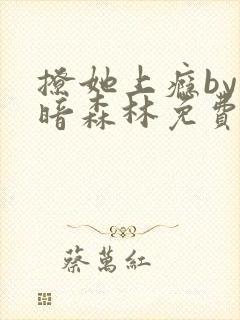 撩她上瘾by
暗森林免費
蔡萬紅